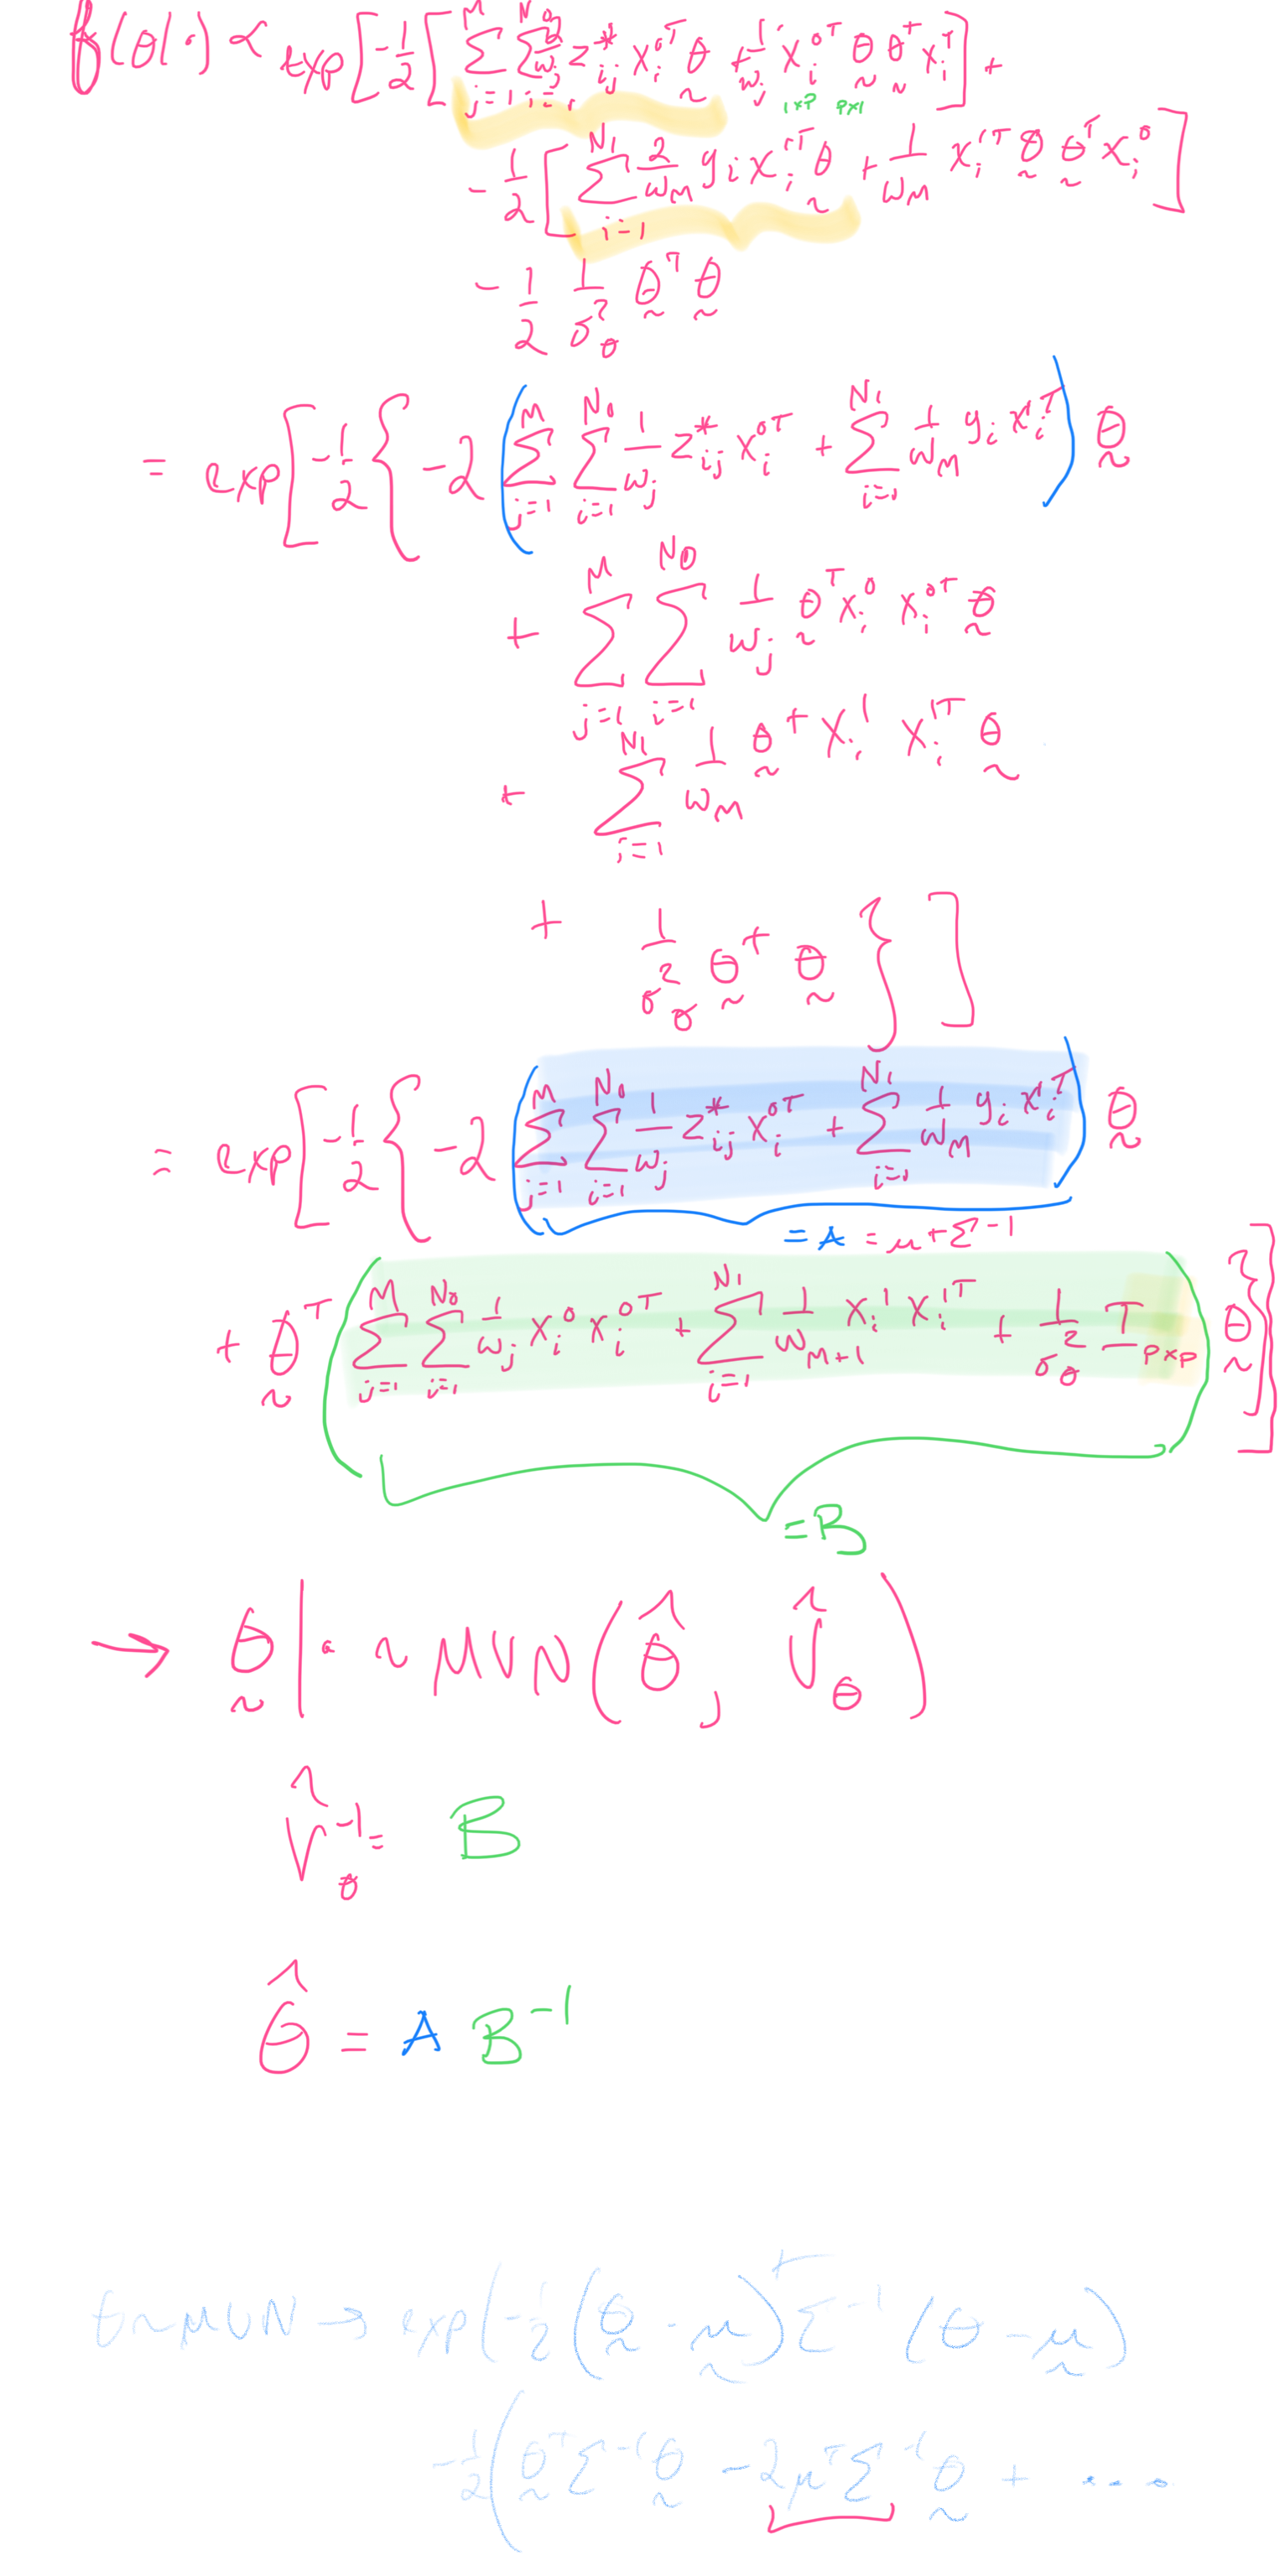 f(θ|·) ∝ exp[-1/2[ Σ_{j=1}^{M} Σ_{i=1}^{N_0} 2/ω_j z*_{ij} x_i^{0T} θ̰ + 1/ω_j x_i^{0T} θ̰ θ̰^T x_i^T ] +
1×P P×1
-1/2[ Σ_{i=1}^{N_1} 2/ω_M y_i x_i^{1T} θ̰ + 1/ω_M x_i^{1T} θ̰ θ̰^T x_i^0 ]
-1/2 1/σ²_θ θ̰^T θ̰
= exp[-1/2{ -2( Σ_{j=1}^{M} Σ_{i=1}^{N_0} 1/ω_j z*_{ij} x_i^{0T} + Σ_{i=1}^{N_1} 1/ω_M y_i x_i^{1T} ) θ̰
+ Σ_{j=1}^{M} Σ_{i=1}^{N_0} 1/ω_j θ̰^T x_i^0 x_i^{0T} θ̰
+ Σ_{i=1}^{N_1} 1/ω_M θ̰^T x_i^1 x_i^{1T} θ̰
+ 1/σ²_θ θ̰^T θ̰ } ]
= exp[-1/2{ -2( Σ_{j=1}^{M} Σ_{i=1}^{N_0} 1/ω_j z*_{ij} x_i^{0T} + Σ_{i=1}^{N_1} 1/ω_M y_i x_i^{1T} ) θ̰
= A = μ^T Σ^{-1}
+ θ̰^T ( Σ_{j=1}^{M} Σ_{i=1}^{N_0} 1/ω_j x_i^0 x_i^{0T} + Σ_{i=1}^{N_1} 1/ω_{M+1} x_i^1 x_i^{1T} + 1/σ²_θ I_{P×P} ) θ̰ }]
= B
→ θ̰ | · ~ MVN( θ̂, V̂_θ )
V̂_θ^{-1} = B
θ̂ = A B^{-1}
θ ~ MVN → exp(-1/2 (θ̰ - μ̰)^T Σ^{-1} (θ - μ̰)
-1/2( θ̰^T Σ^{-1} θ̰ - 2μ^T Σ^{-1} θ̰ + ...